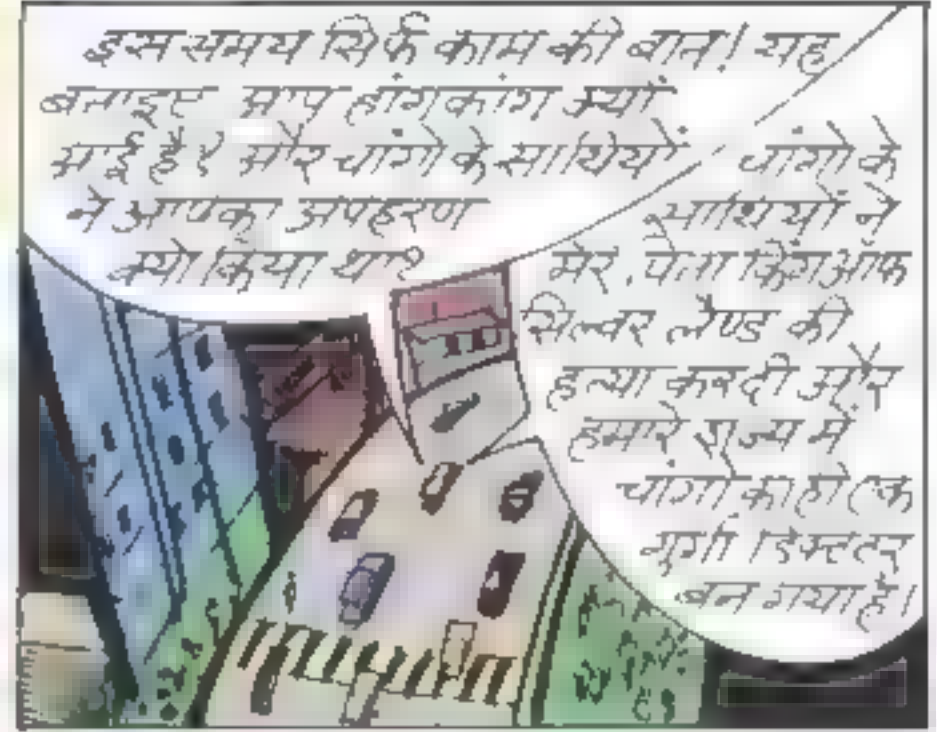 इस समय सिर्फ काम की बात! यह
बताइए आप हांगकांग क्यों
आई हैं? और चांगो के साथियों
ने आपका अपहरण
क्यों किया था?
चांगो के
साथियों ने
मेरे पिता किंग ऑफ
सिल्वर लैण्ड की
हत्या कर दी और
हमारे राज्य में
चांगो का ही एक
गुर्गा डिक्टेटर
बन गया है।